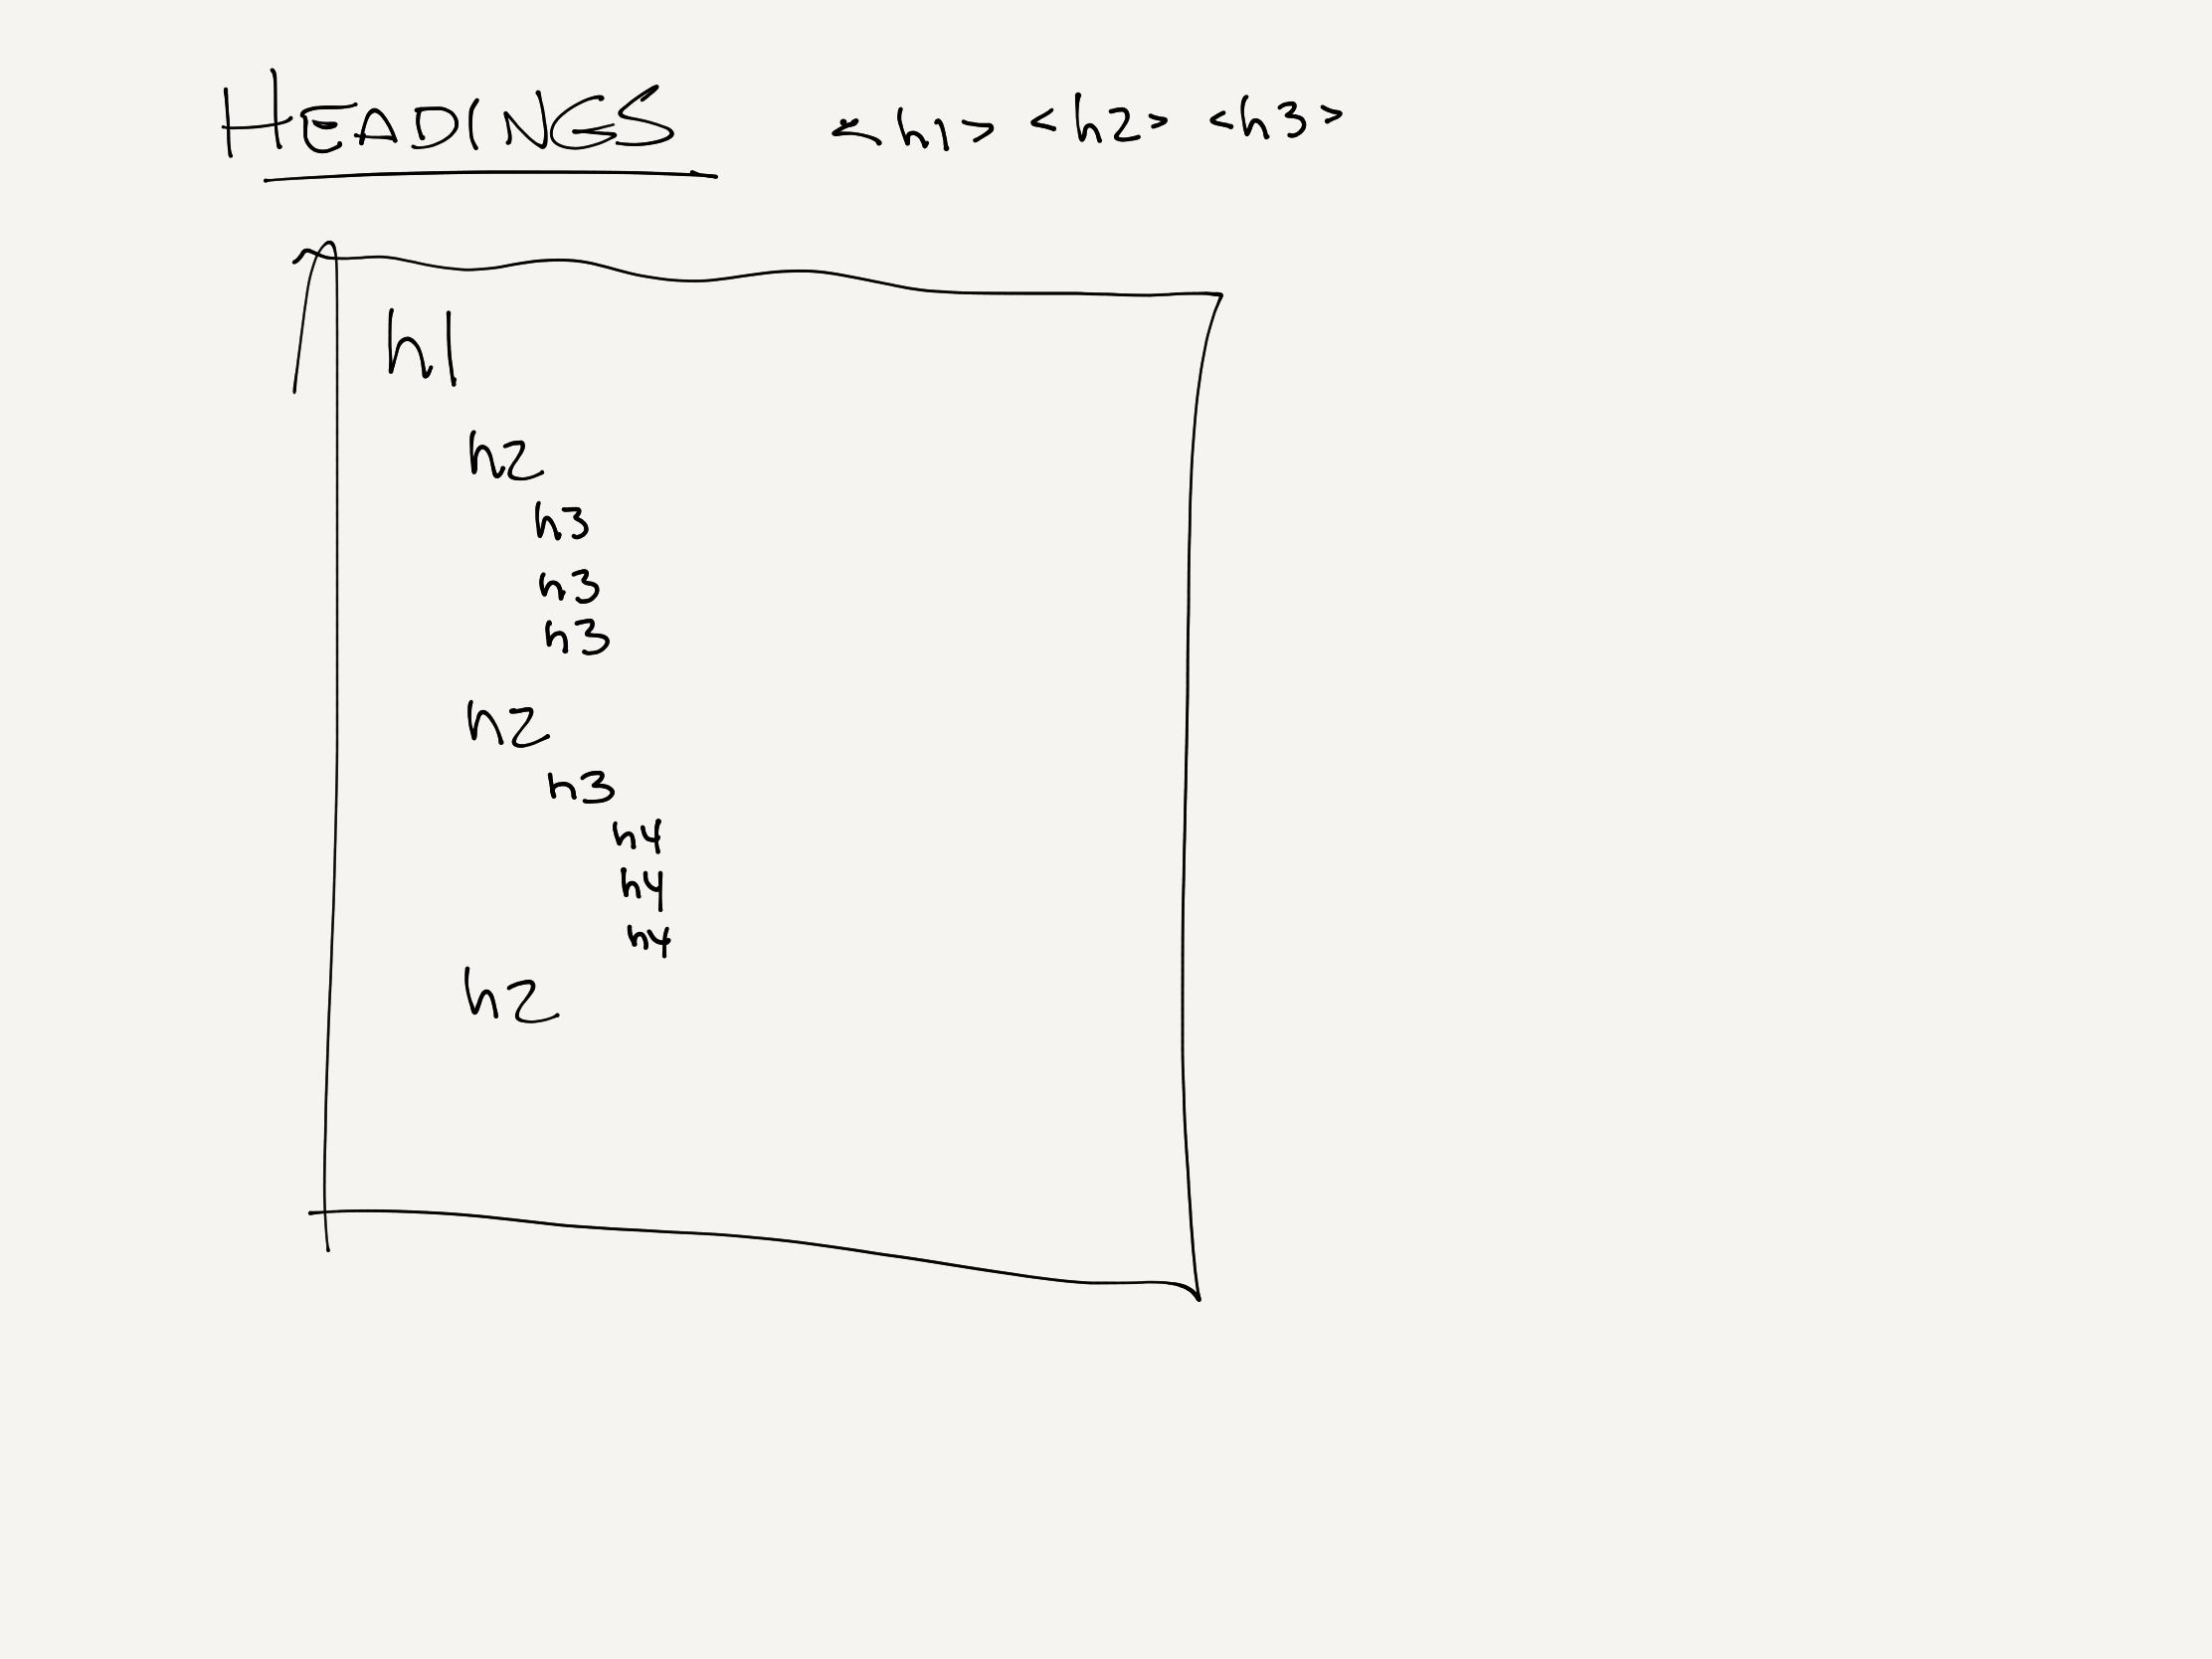 HEADINGS <h1> <h2> <h3>
h1
h2
h3
h3
h3
h2
h3
h4
h4
h4
h2